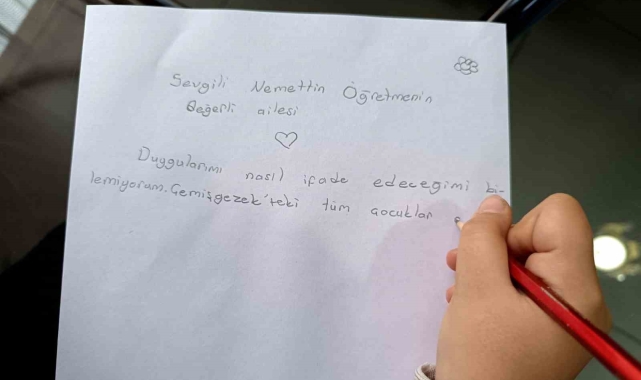 Sevgili Nemettin Öğretmenin
Değerli ailesi
Duygularımı nasıl ifade edeceğimi bi-
lemiyorum. Çemişgezek'teki tüm çocuklar